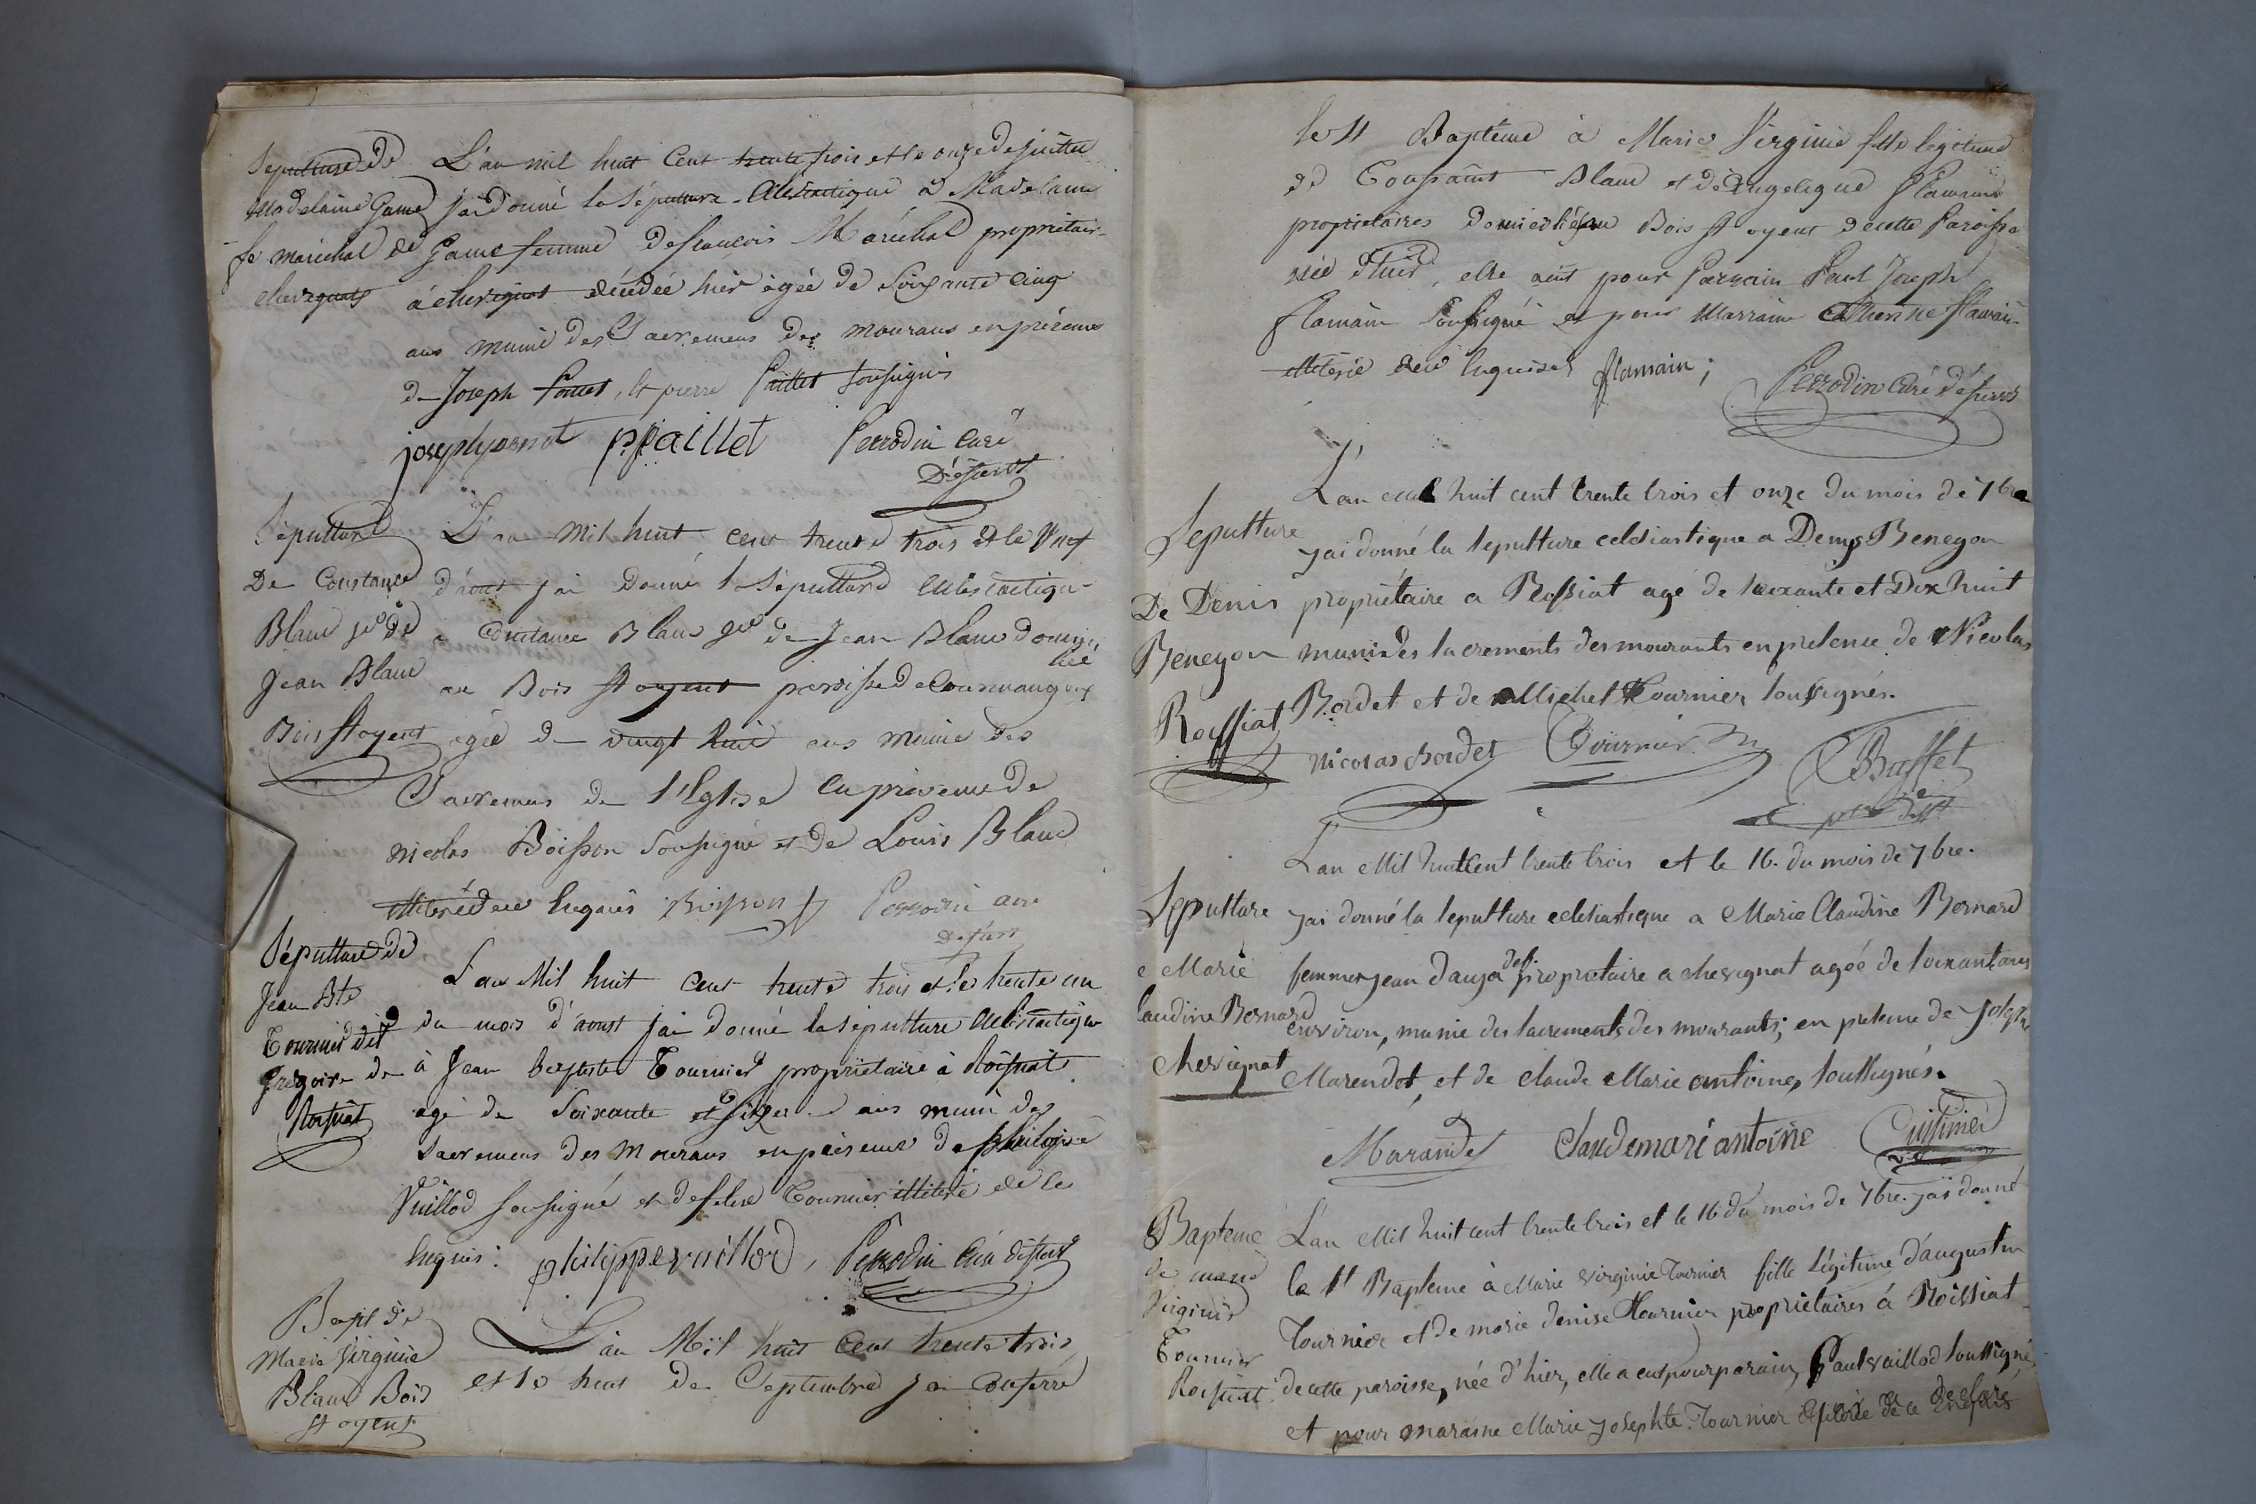 Sépulture de
Madelaine Game
fe maréchal de
chevignat
L'an mil huit Cent trente trois et le onze de juillet
j'ai donné la Sépulture Eclesiastique à Madelaine
Game femme de françois Maréchal proprietaire
à chevignat décédée hier agée de Soixante cinq
ans munie des Sacremens des mourans en présence
de Joseph et pierre Paillet Soussignés
p paillet Perrodin Curé
Sépulture
De Constance
Blanc
Jean Blanc
Bois St oyent
L'an Mil huit cent trente trois et le Neuf
d'aout j'ai Donné la Sépulture Eclesiastique
à Constance Blanc de Jean Blanc domici
lié
au Bois St oyent paroisse de
agée de vingt huit ans munie des
Sacremens de l'Eglise En présence de
nicolas Boisson Soussigné et de Louis Blanc
illiteré de ce Enquis Boisson Perrodin curé
Sépulture de
Jean Bte
Tournier dit
Grégoire de
Roissiat
L'an Mil huit cent trente trois et le trente un
du mois d'aoust j'ai donné la Sépulture Eclesiastique
à Jean Baptiste Tournier propriétaire à Roissiat
agé de Soixante et ans muni des
Sacremens des Mourans en présence de philippe
Vuillod soussigné et de Tournier illiteré de ce
Enquis : philippe vuillod, Perrodin Curé
Bapt de
Marie Virginie
Blanc Bois
St oyent
L'an Mil huit Cent trente trois
et le huit De Septembre j'ai Conferré
le St Baptême à Marie Virginie fille légitime
de Toussaint Blanc et de Angelique Flamain
propriétaires domiciliés au Bois St oyent de cette Paroisse
née d'hier, elle a eut pour Parrain Paul Joseph
flamain Soussigné et pour Marraine flamain
illiterée de ce Enquise flamain ; Perrodin Curé
Sepulture
De Denis
Benegon
Roissiat
L'an mil huit cent trente trois et onze du mois de 7bre
jai donné la sepulture eclesiastique a Denys Benegon
propriétaire a Roissiat agé de soixante et Dix huit
muni des sacrements des mourants en presence de Nicolas
Bordet et de Michel Tournier soussignés.
nicolas bordet Tournier Buffet
Sepulture
e Marie
laudine Bernard
chevignat
L'an Mil huit Cent trente trois et le 16. du mois de 7bre.
jai donné la sepulture eclesiastique a Marie Claudine Bernard
femme jean propriétaire a chevignat agée de soixante ans
environ, munie des sacrements des mourants; en presence de joseph
Marendet, et de claude Marie antoine, soussignés.
Marandet Claudemarieantoine Cuissinier
Bapteme
de marie
Virginie
Tournier
Roissiat
L'an Mil huit cent trente trois et le 16 du mois de 7bre. jai donné
le St Bapteme à Marie virginie Tournier fille Légitime d'augustin
Tournier et de marie denise Tournier propriétaires à Roissiat
de cette paroisse, née d'hier, elle a eut pour parain, Paul vuillod soussigné,
et pour maraine Marie josephte Tournier